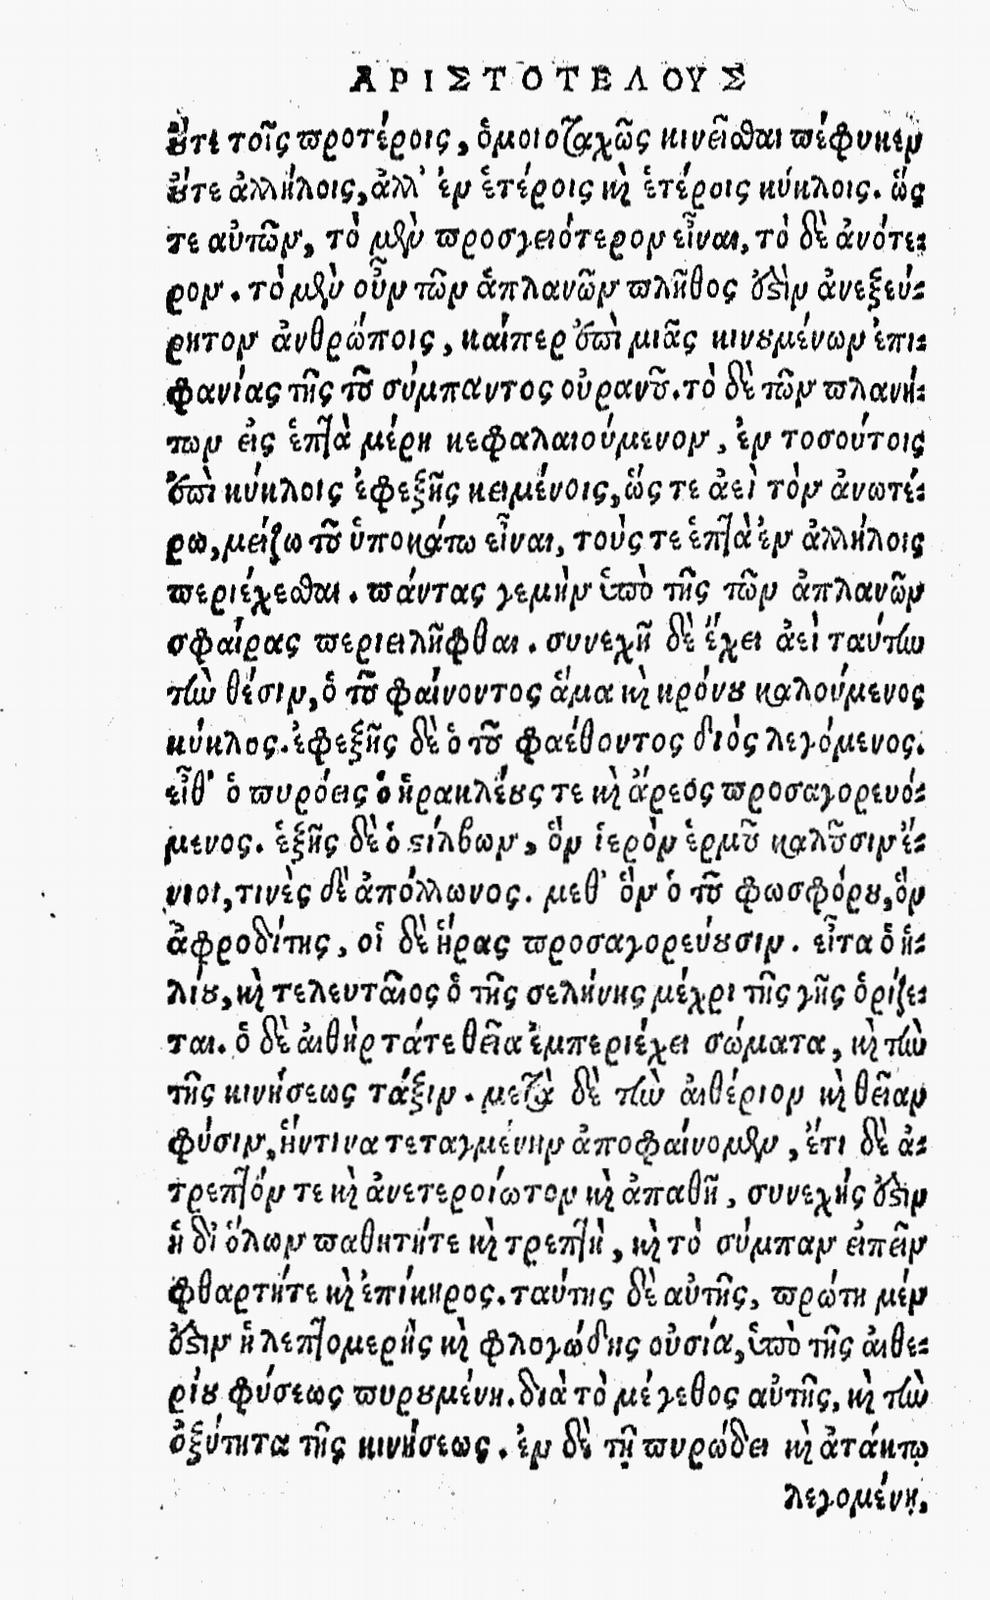 ΑΡΙΣΤΟΤΕΛΟΥΣ
οὔτε τοῖς προτέροις, ὁμοιοταχῶς κινεῖσθαι πέφυκεν
οὔτε ἀλλήλοις, ἀλλ' ἐν ἑτέροις καὶ ἑτέροις κύκλοις. ὥς
τε αὐτῶν, τὸ μὲν προσγειότερον εἶναι, τὸ δὲ ἀνότε-
ρον. τὸ μὲν οὖν τῶν ἀπλανῶν πλῆθος ἐστὶν ἀνεξεύ-
ρητον ἀνθρώποις, καίπερ ἐπὶ μιᾶς κινουμένων ἐπι-
φανίας τῆς τοῦ σύμπαντος οὐρανοῦ. τὸ δὲ τῶν πλανή-
των εἰς ἑπτὰ μέρη κεφαλαιούμενον, ἐν τοσούτοις
ἐστὶ κύκλοις ἐφεξῆς κειμένοις, ὥς τε ἀεὶ τὸν ἀνωτέ-
ρω, μείζω τοῦ ὑποκάτω εἶναι, τούς τε ἑπτὰ ἐν ἀλλήλοις
περιέχεσθαι. πάντας γεμὴν ὑπὸ τῆς τῶν ἀπλανῶν
σφαίρας περιειλῆφθαι. συνεχῆ δὲ ἔχει ἀεὶ ταύτην
τὴν θέσιν, ὁ τοῦ φαίνοντος ἅμα καὶ κρόνου καλούμενος
κύκλος. ἐφεξῆς δὲ ὁ τοῦ φαέθοντος διὸς λεγόμενος.
εἶθ' ὁ πυρόεις ὁ ἡρακλέους τε καὶ ἄρεος προσαγορευό-
μενος. ἑξῆς δὲ ὁ στίλβων, ὃν ἱερὸν ἑρμοῦ καλοῦσιν ἔ-
νιοι, τινὲς δὲ ἀπόλλωνος. μεθ' ὃν ὁ τοῦ φωσφόρου, ὃν
ἀφροδίτης, οἱ δὲ ἥρας προσαγορεύουσιν. εἶτα ὁ ἡ-
λίου, καὶ τελευταῖος ὁ τῆς σελήνης μέχρι τῆς γῆς ὁρίζε-
ται. ὁ δὲ αἰθὴρ τάτε θεῖα ἐμπεριέχει σώματα, καὶ τὴν
τῆς κινήσεως τάξιν. μετὰ δὲ τὴν αἰθέριον καὶ θεῖαν
φύσιν, ἥντινα τεταγμένην ἀποφαίνομεν, ἔτι δὲ ἄ-
τρεπτόν τε καὶ ἀνετεροίωτον καὶ ἀπαθῆ, συνεχής ἐστιν
ἡ δι' ὅλων παθητήτε καὶ τρεπτὴ, καὶ τὸ σύμπαν εἰπεῖν
φθαρτήτε καὶ ἐπίκηρος. ταύτης δὲ αὐτῆς, πρώτη μέν
ἐστιν ἡ λεπτομερὴς καὶ φλογώδης οὐσία, ὑπὸ τῆς αἰθε-
ρίου φύσεως πυρουμένη. διὰ τὸ μέγεθος αὐτῆς, καὶ τὴν
ὀξύτητα τῆς κινήσεως. ἐν δὲ τῇ πυρώδει καὶ ἀτάκτῳ
λεγομένῃ,